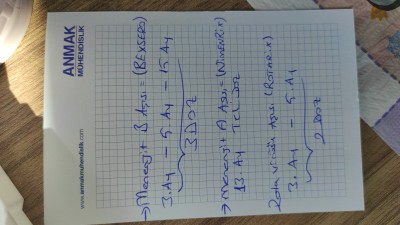 ANMAK
MÜHENDİSLİK
→ Menenjit B Aşısı = (BEXSERO)
3.AY - 5.AY - 15.AY
3 DOZ
→ Menenjit A Aşısı = (Nimenrix)
13.AY TEK DOZ
Rota virüsü Aşısı (ROTARİX)
3.AY - 5.AY
2 DOZ
www.anmakmuhendislik.com